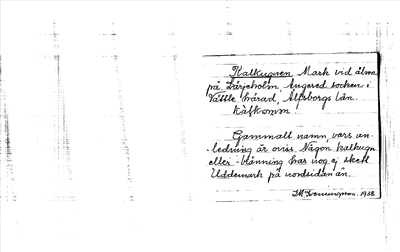 Kalkugnen Mark vid älven
på Lärjeholm Angered socken i
Vättle härad, Älfsborgs län.
Gammalt namn, vars an-
ledning är oviss. Någon kalkugn
eller -bränning har nog ej skett
Uddemark på nordsidan ån.
1938